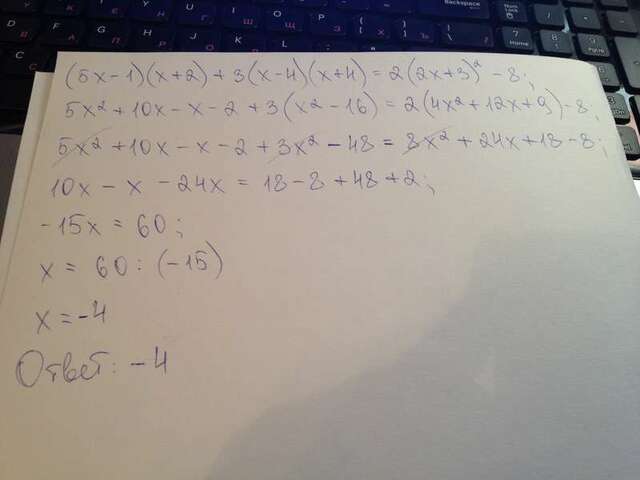 (5x-1)(x+2)+3(x-4)(x+4)=2(2x+3)²-8;
5x²+10x-x-2+3(x²-16)=2(4x²+12x+9)-8;
5x²+10x-x-2+3x²-48=8x²+24x+18-8;
10x-x-24x=18-8+48+2;
-15x=60;
x=60:(-15)
x=-4
Ответ: -4